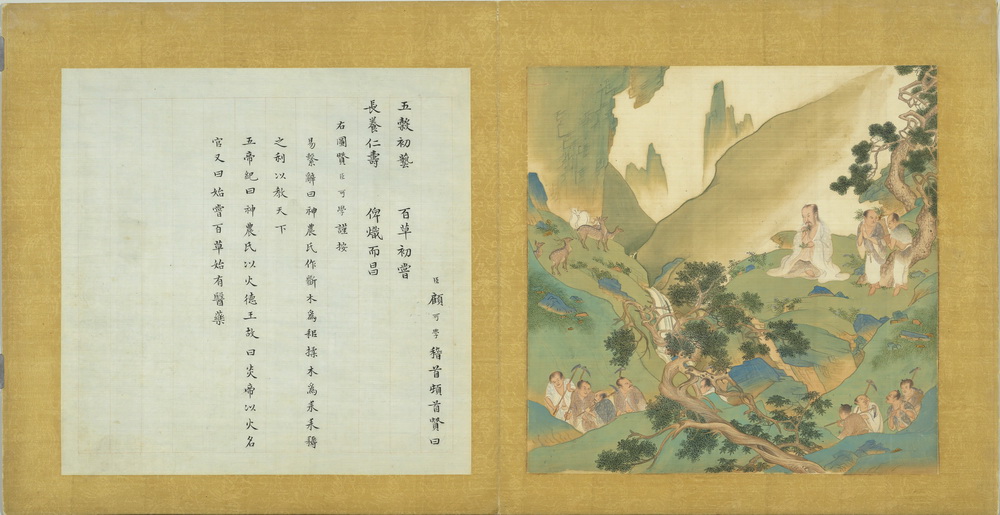 臣顧可學稽首頓首贊曰
五穀初藝　百草初嘗
長養仁壽　俾熾而昌
右圖贊臣可學謹按
易繫辭曰神農氏作斲木為耜揉木為耒耒耨
之利以教天下
五帝紀曰神農氏以火德王故曰炎帝以火名
官又曰始嘗百草始有醫藥